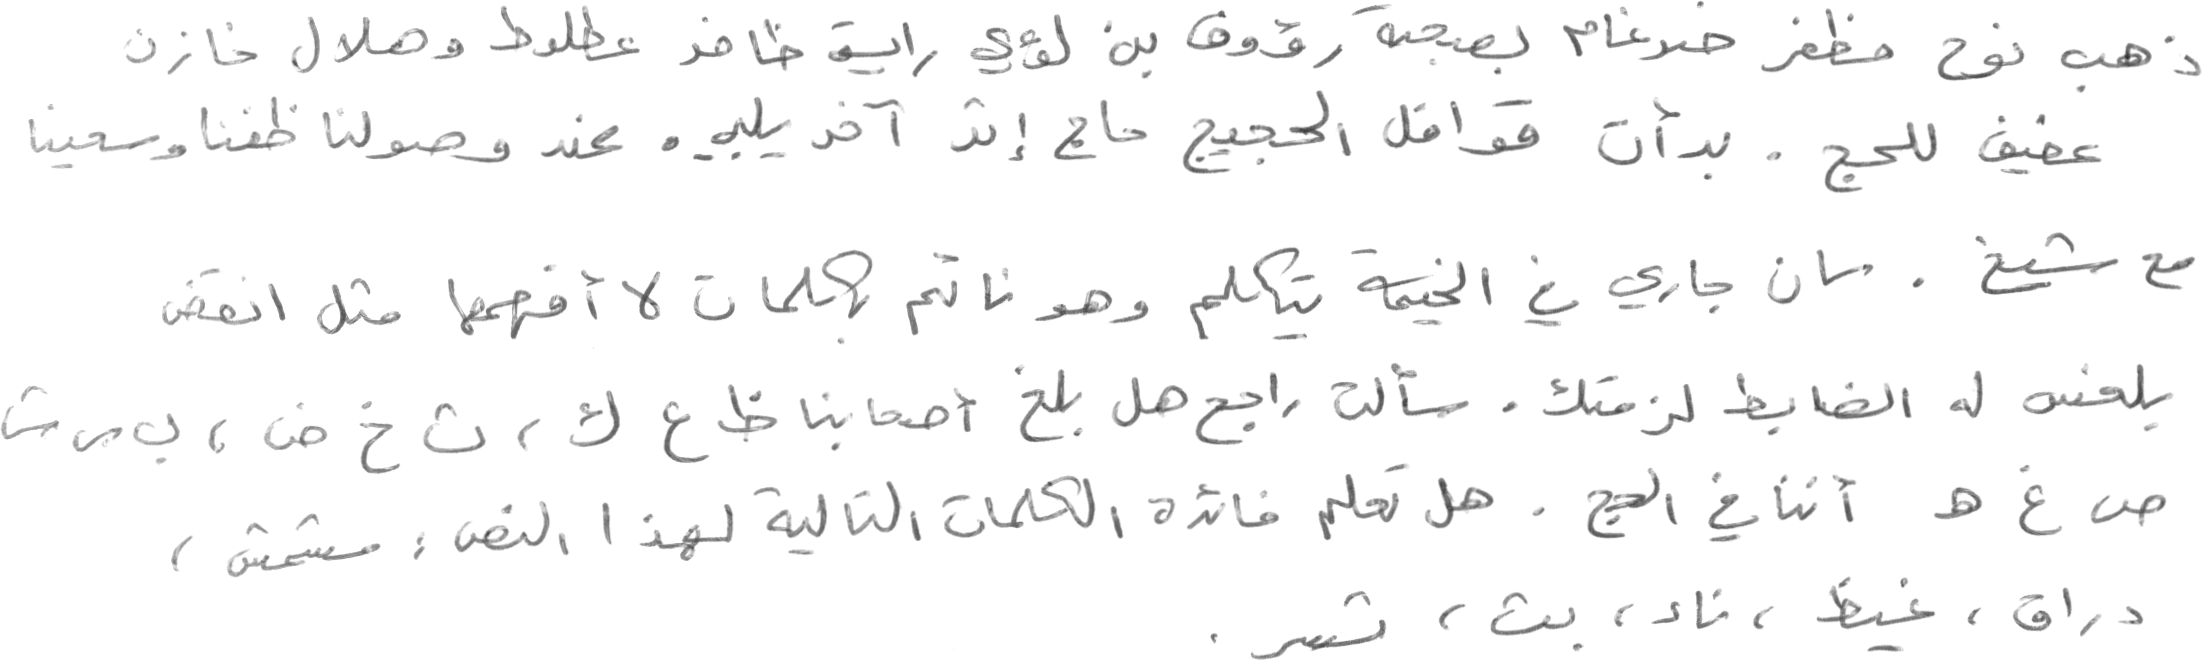 ذهب نوح مظفر ضرغام بصحبة رؤوف بن لؤي رايق ظافر عطلوط وهلال خازن
عفيف للحج . بدأت قوافل الحجيج حاج إثر آخر يلبي . عند وصولنا طفنا وسعينا
مع شيخ . كان جاري في الخيمة يتكلم وهو نائم بكلمات لا أفهمها مثل انقض
يلعنس له الضابط لزمتك . سألت راجح هل بلغ أصحابنا ظ ع ك ، ث خ ض ، ب س ش
ص غ ه أننا في الحج . هل تعلم فائدة الكلمات التالية لهذا النص : مشمش ،
دراق ، غيظ ، ناء ، بث ، تسر .